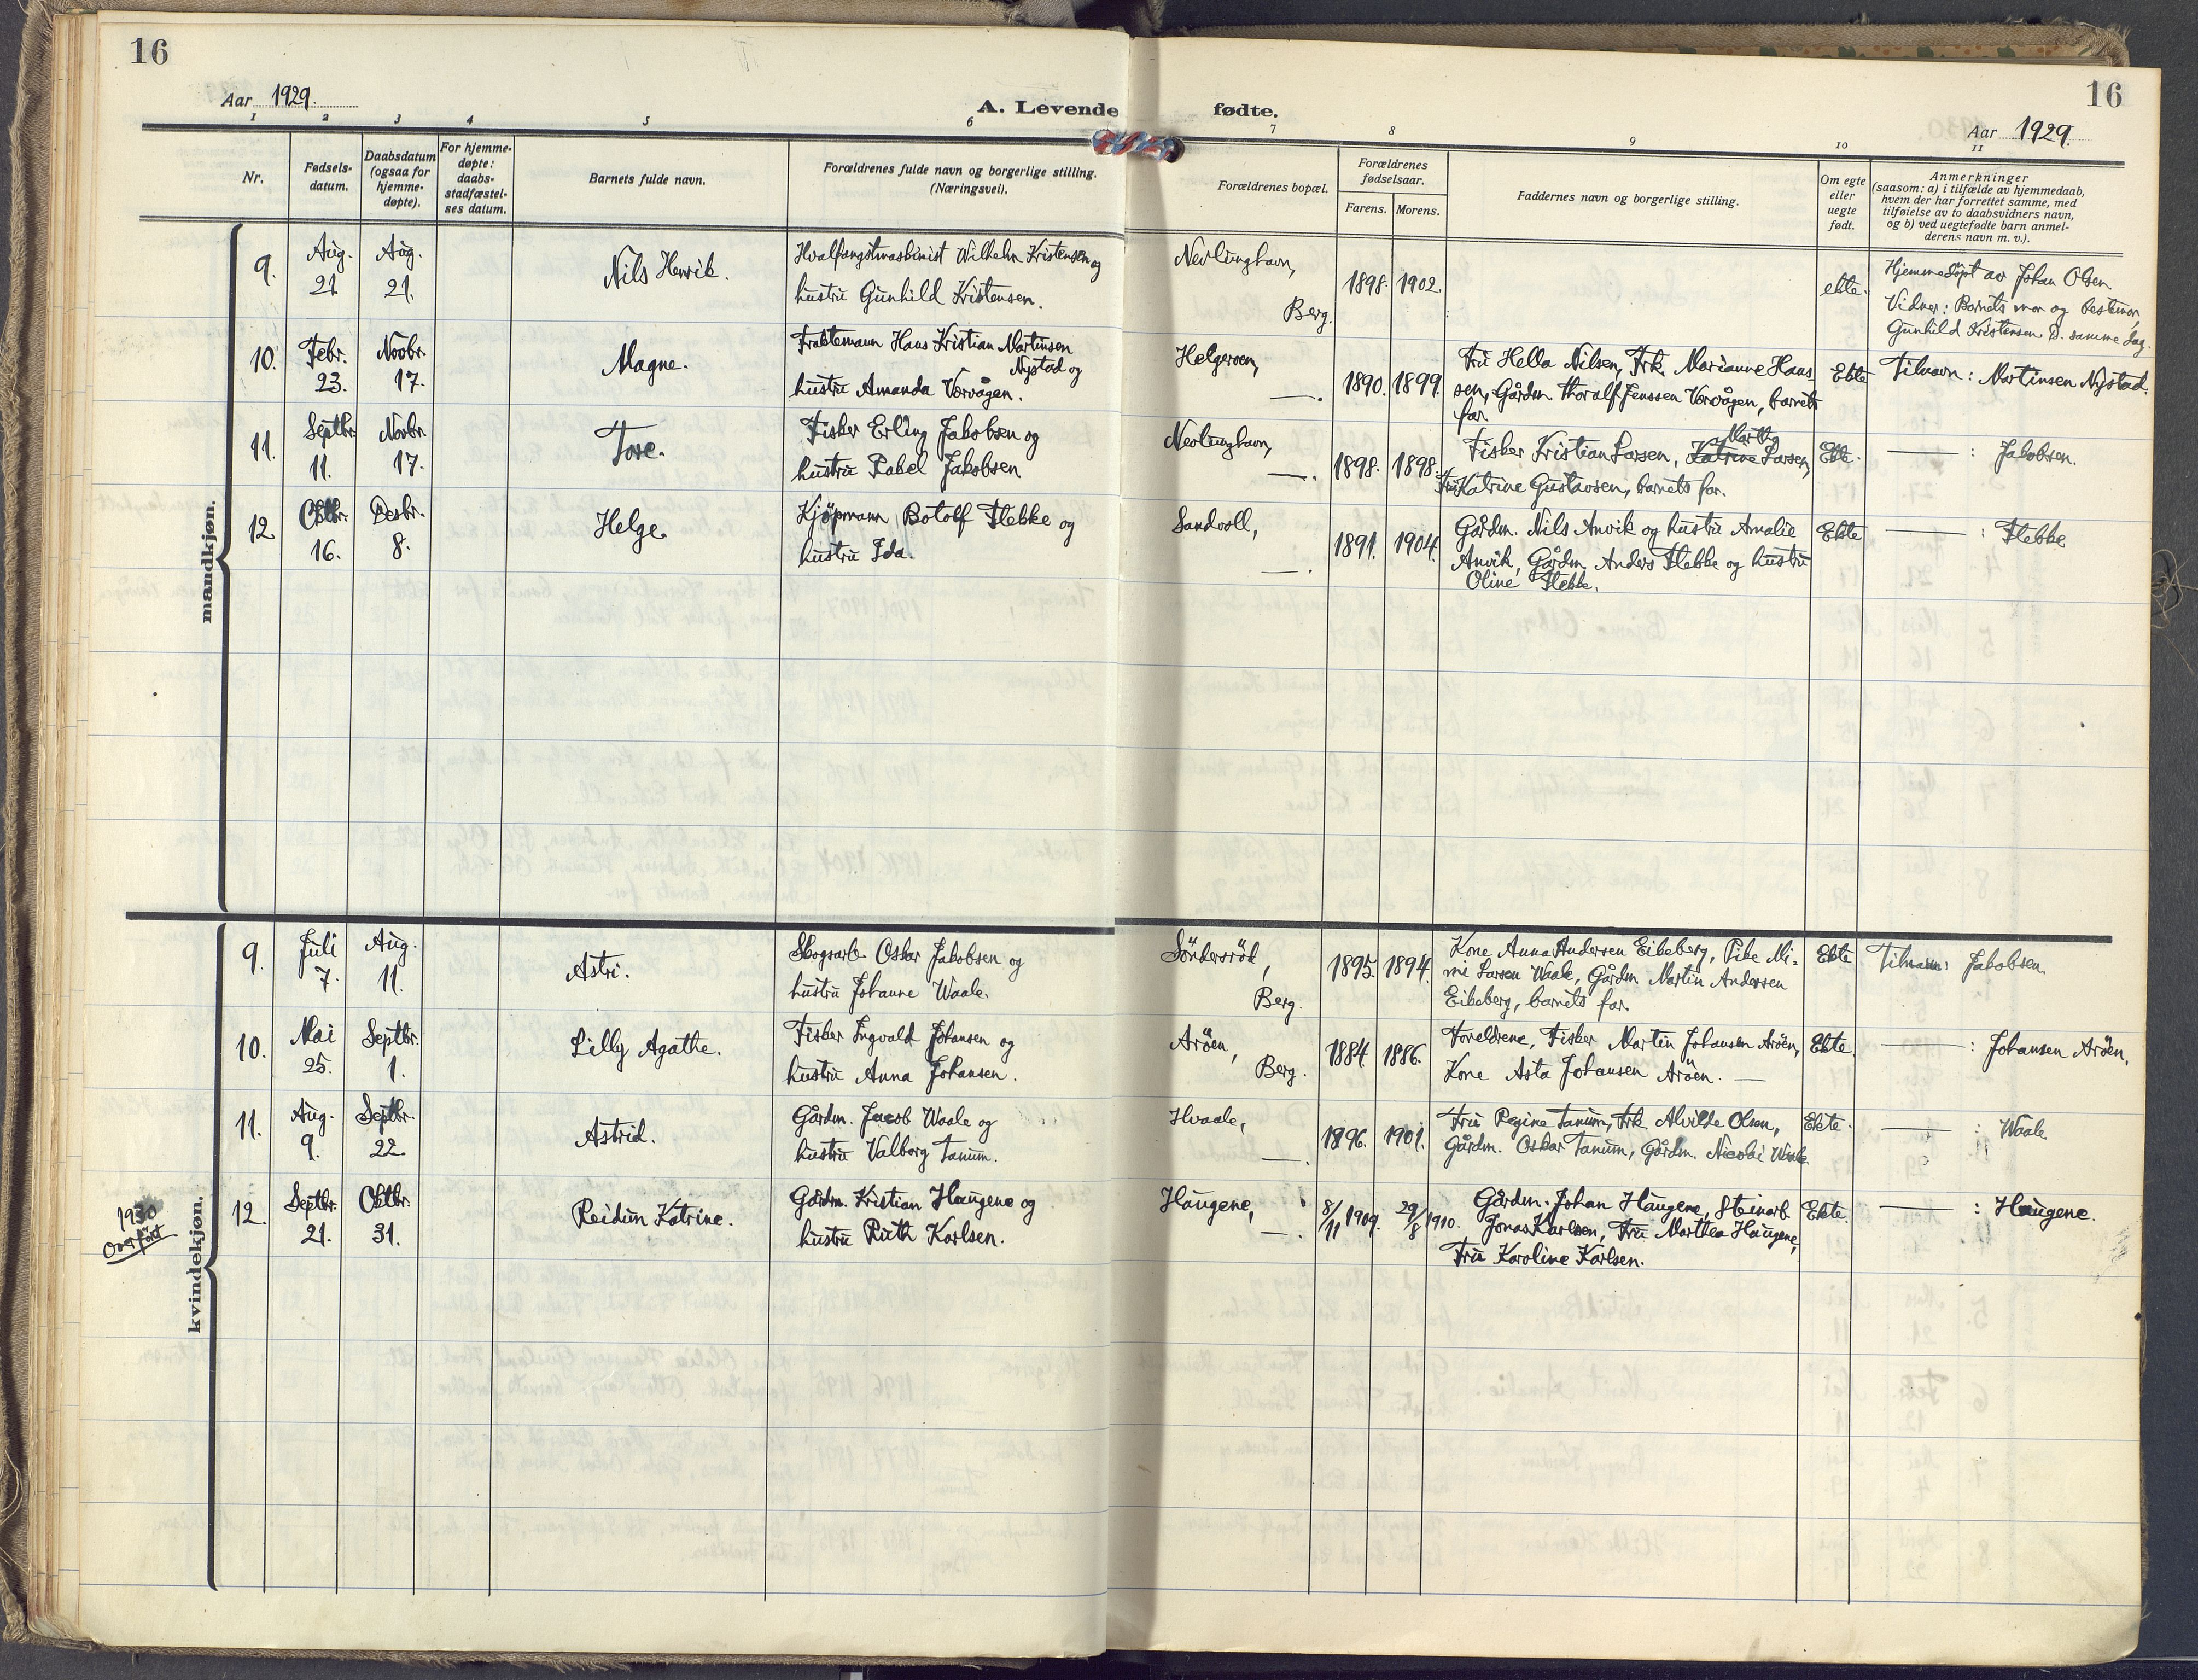 16
Aar 1929.
A. Levende fødte.
16
Aar 1929.
1 2 3 4 5 6 7 8 9 10 11
Nr.
Fødsels-
datum.
Daabsdatum
(ogsaa for
hjemme-
døpte).
For hjemme-
døpte:
daabs-
stadfæstel-
ses datum.
Barnets fulde navn.
Forældrenes fulde navn og borgerlige stilling.
(Næringsvei).
Forældrenes bopæl.
Forældrenes
fødselsaar.
Farens. Morens.
Faddernes navn og borgerlige stilling.
Om egte
eller
uegte
født.
Anmerkninger
(saasom: a) i tilfælde av hjemmedaab,
hvem der har forrettet samme, med
tilføielse av to daabsvidners navn,
og b) ved uegtefødte barn anmel-
derens navn m. v.).
mandkjøn.
9. Aug. 21 Aug. 21. Nils Henrik.
Hvalfangstmaskinist Wilhelm Kristensen og
hustru Gunhild Kristensen.
Nevlunghavn,
Berg.
1898. 1902.
ekte.
Hjemmedöpt av Johan Olsen.
Vidner: Barnets mor og bestemor,
Gunhild Kristensen D. samme dag.
10. Febr. 23. Novbr. 17. Magne.
Fraktemann Hans Kristian Martinsen
Nystad og
hustru Amanda Vorvågen.
Helgeroen,
—.
1890. 1899.
Fru Hella Nilsen, Frk. Marianne Hans
sen, Gårdm. Thoralf Jenssen Vorvågen, barnets
far.
Ekte
Tilnavn: Martinsen Nystad.
11. Septbr. 11. Novbr. 17. Tore.
Fisker Erling Jakobsen og
hustru Rakel Jakobsen
Nevlunghavn,
—.
1898. 1898.
Martha
Fisker Kristian Larsen, Katrine Larsen,
Fru Katrine Gustavsen, barnets far.
Ekte.
— : Jakobsen.
12. Oktbr. 16. Desbr. 8. Helge.
Kjöpmann Botolf Flebke og
hustru Ida.
Sandvoll,
—.
1891. 1904.
Gårdm. Nils Anvik og hustru Amalie
Anvik, Gårdm. Anders Flebke og hustru
Oline Flebke.
Ekte
— : Flebke
kvindekjøn.
9. Juli 7. Aug. 11. Astri.
Skogsarb. Oskar Jakobsen og
hustru Johanne Waale.
Söndersröd,
Berg.
1895. 1894.
Kone Anna Andersen Eikeberg, Pike Mi-
mi Larsen Waale, Gårdm. Martin Andersen
Eikeberg, barnets far.
Ekte
Tilnavn: Jakobsen.
10. Mai 25. Septbr. 1. Lilly Agathe.
Fisker Ingvald Johansen og
hustru Anna Johansen.
Aröen,
Berg.
1884. 1886.
Foreldrene, Fisker Martin Johansen Aröen,
Kone Asta Johansen Aröen. —
Ekte.
— : Johansen Aröen.
11. Aug. 9. Septbr. 22. Astrid.
Gårdm. Jacob Waale og
hustru Valborg Tanum.
Hvaale,
—.
1896. 1901.
Fru Regine Tanum, Frk Alvilde Olsen,
Gårdm. Oskar Tanum, Gårdm. Nicolai Waale.
Ekte.
— : Waale
1930
Overfört
12. Septbr. 21. Oktbr. 31. Reidun Katrine.
Gårdm. Kristian Haugene og
hustru Ruth Karlsen.
Haugene,
—.
8/11 1909. 29/8 1910.
Gårdm. Johan Haugene, Steinarb.
Jonas Karlsen, Fru Marthea Haugene,
Fru Karoline Karlsen.
Ekte.
— : Haugene.